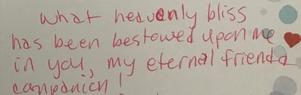 What heavenly bliss
has been bestowed upon me
in you, my eternal friend &
companion!